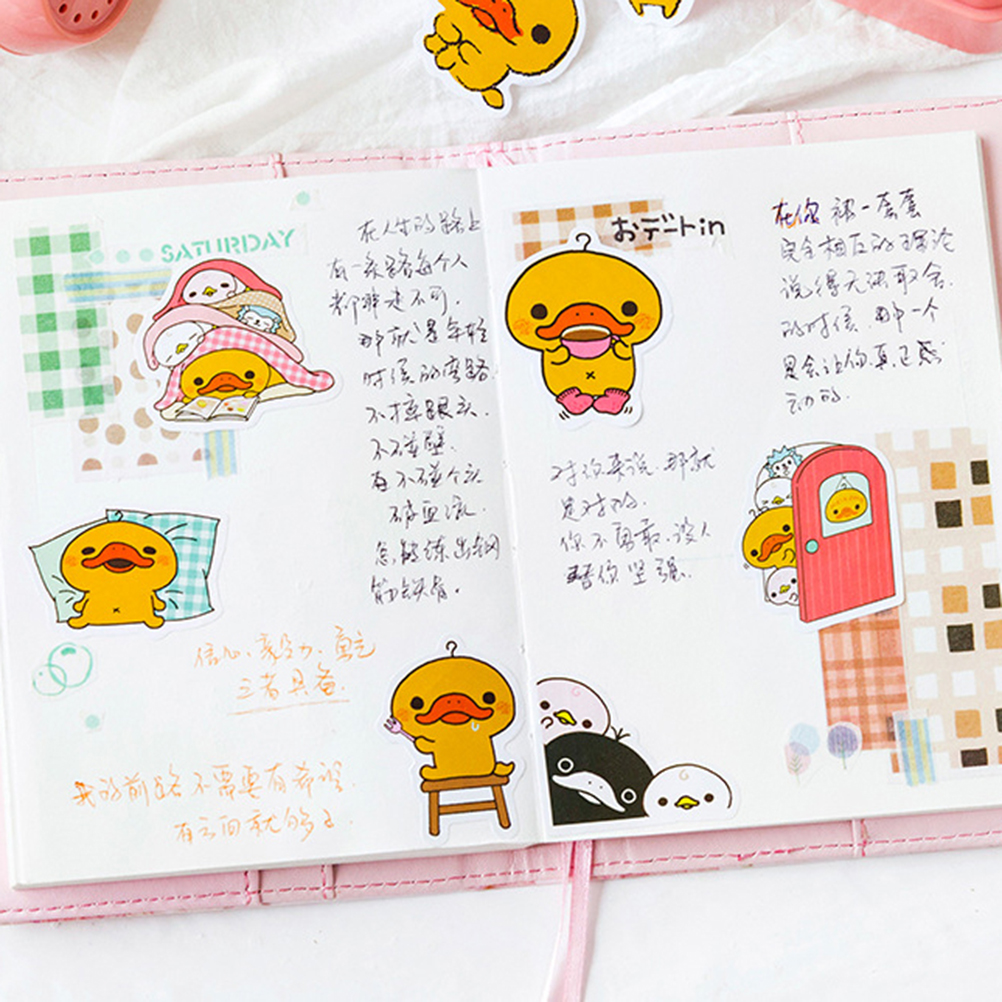 SATURDAY
在人生的路上
有一条路每个人
都非走不可.
那就是年轻
时候的弯路
不摔跟头.
不碰壁.
不碰个头
破血流.
怎能练出钢
筋铁骨.
信心、毅力、勇气
三者具备.
我的前路不需要有希望.
有方向就够了.
おデートin
在你被一套套
完全相反的理论
说得无所取舍.
的时候.那一个
是会让你真正感
动的.
对你来说.那就
是对的.
你不勇敢.没人
替你坚强.